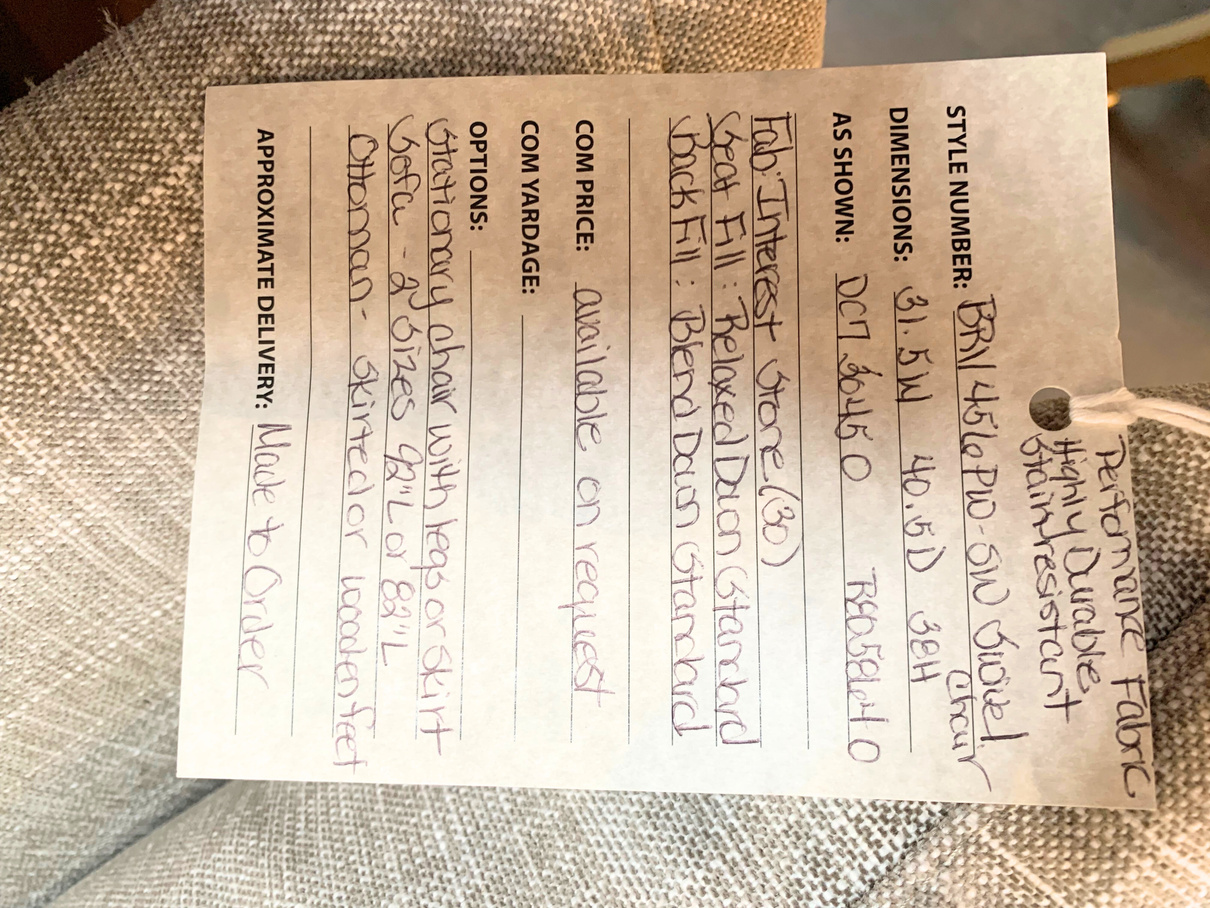 Performance Fabric
Highly Durable
Stain resistant
STYLE NUMBER: BR1456PW-SW Swivel
Chair
DIMENSIONS: 31.5W 40.5D 38H
AS SHOWN:
Fab: Interest Stone (30)
Seat Fill: Relaxed Down Standard
Back Fill: Blend Down Standard
COM PRICE: available on request
COM YARDAGE:
OPTIONS:
Stationary chair with legs or skirt
Sofa - 2 sizes 92"L or 82"L
Ottoman - skirted or wooden feet
APPROXIMATE DELIVERY: Made to Order